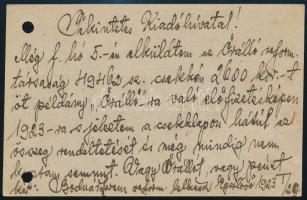 Tekintetes Kiadóhivatal!
Még f. hó 5.-én elküldtem az Őrálló reform.
társaság 49462 sz. csekkén 2600 kor.-t
öt példány Őrálló-ra való előfizetésképen
1923-ra s jeleztem a csekklapon hátul az
összeg rendeltetését és még mindig nem
kaptam semmit. Vagy Őrállót, vagy pénzt
kér: Bodnár reform. lelkész 1923 I/20.